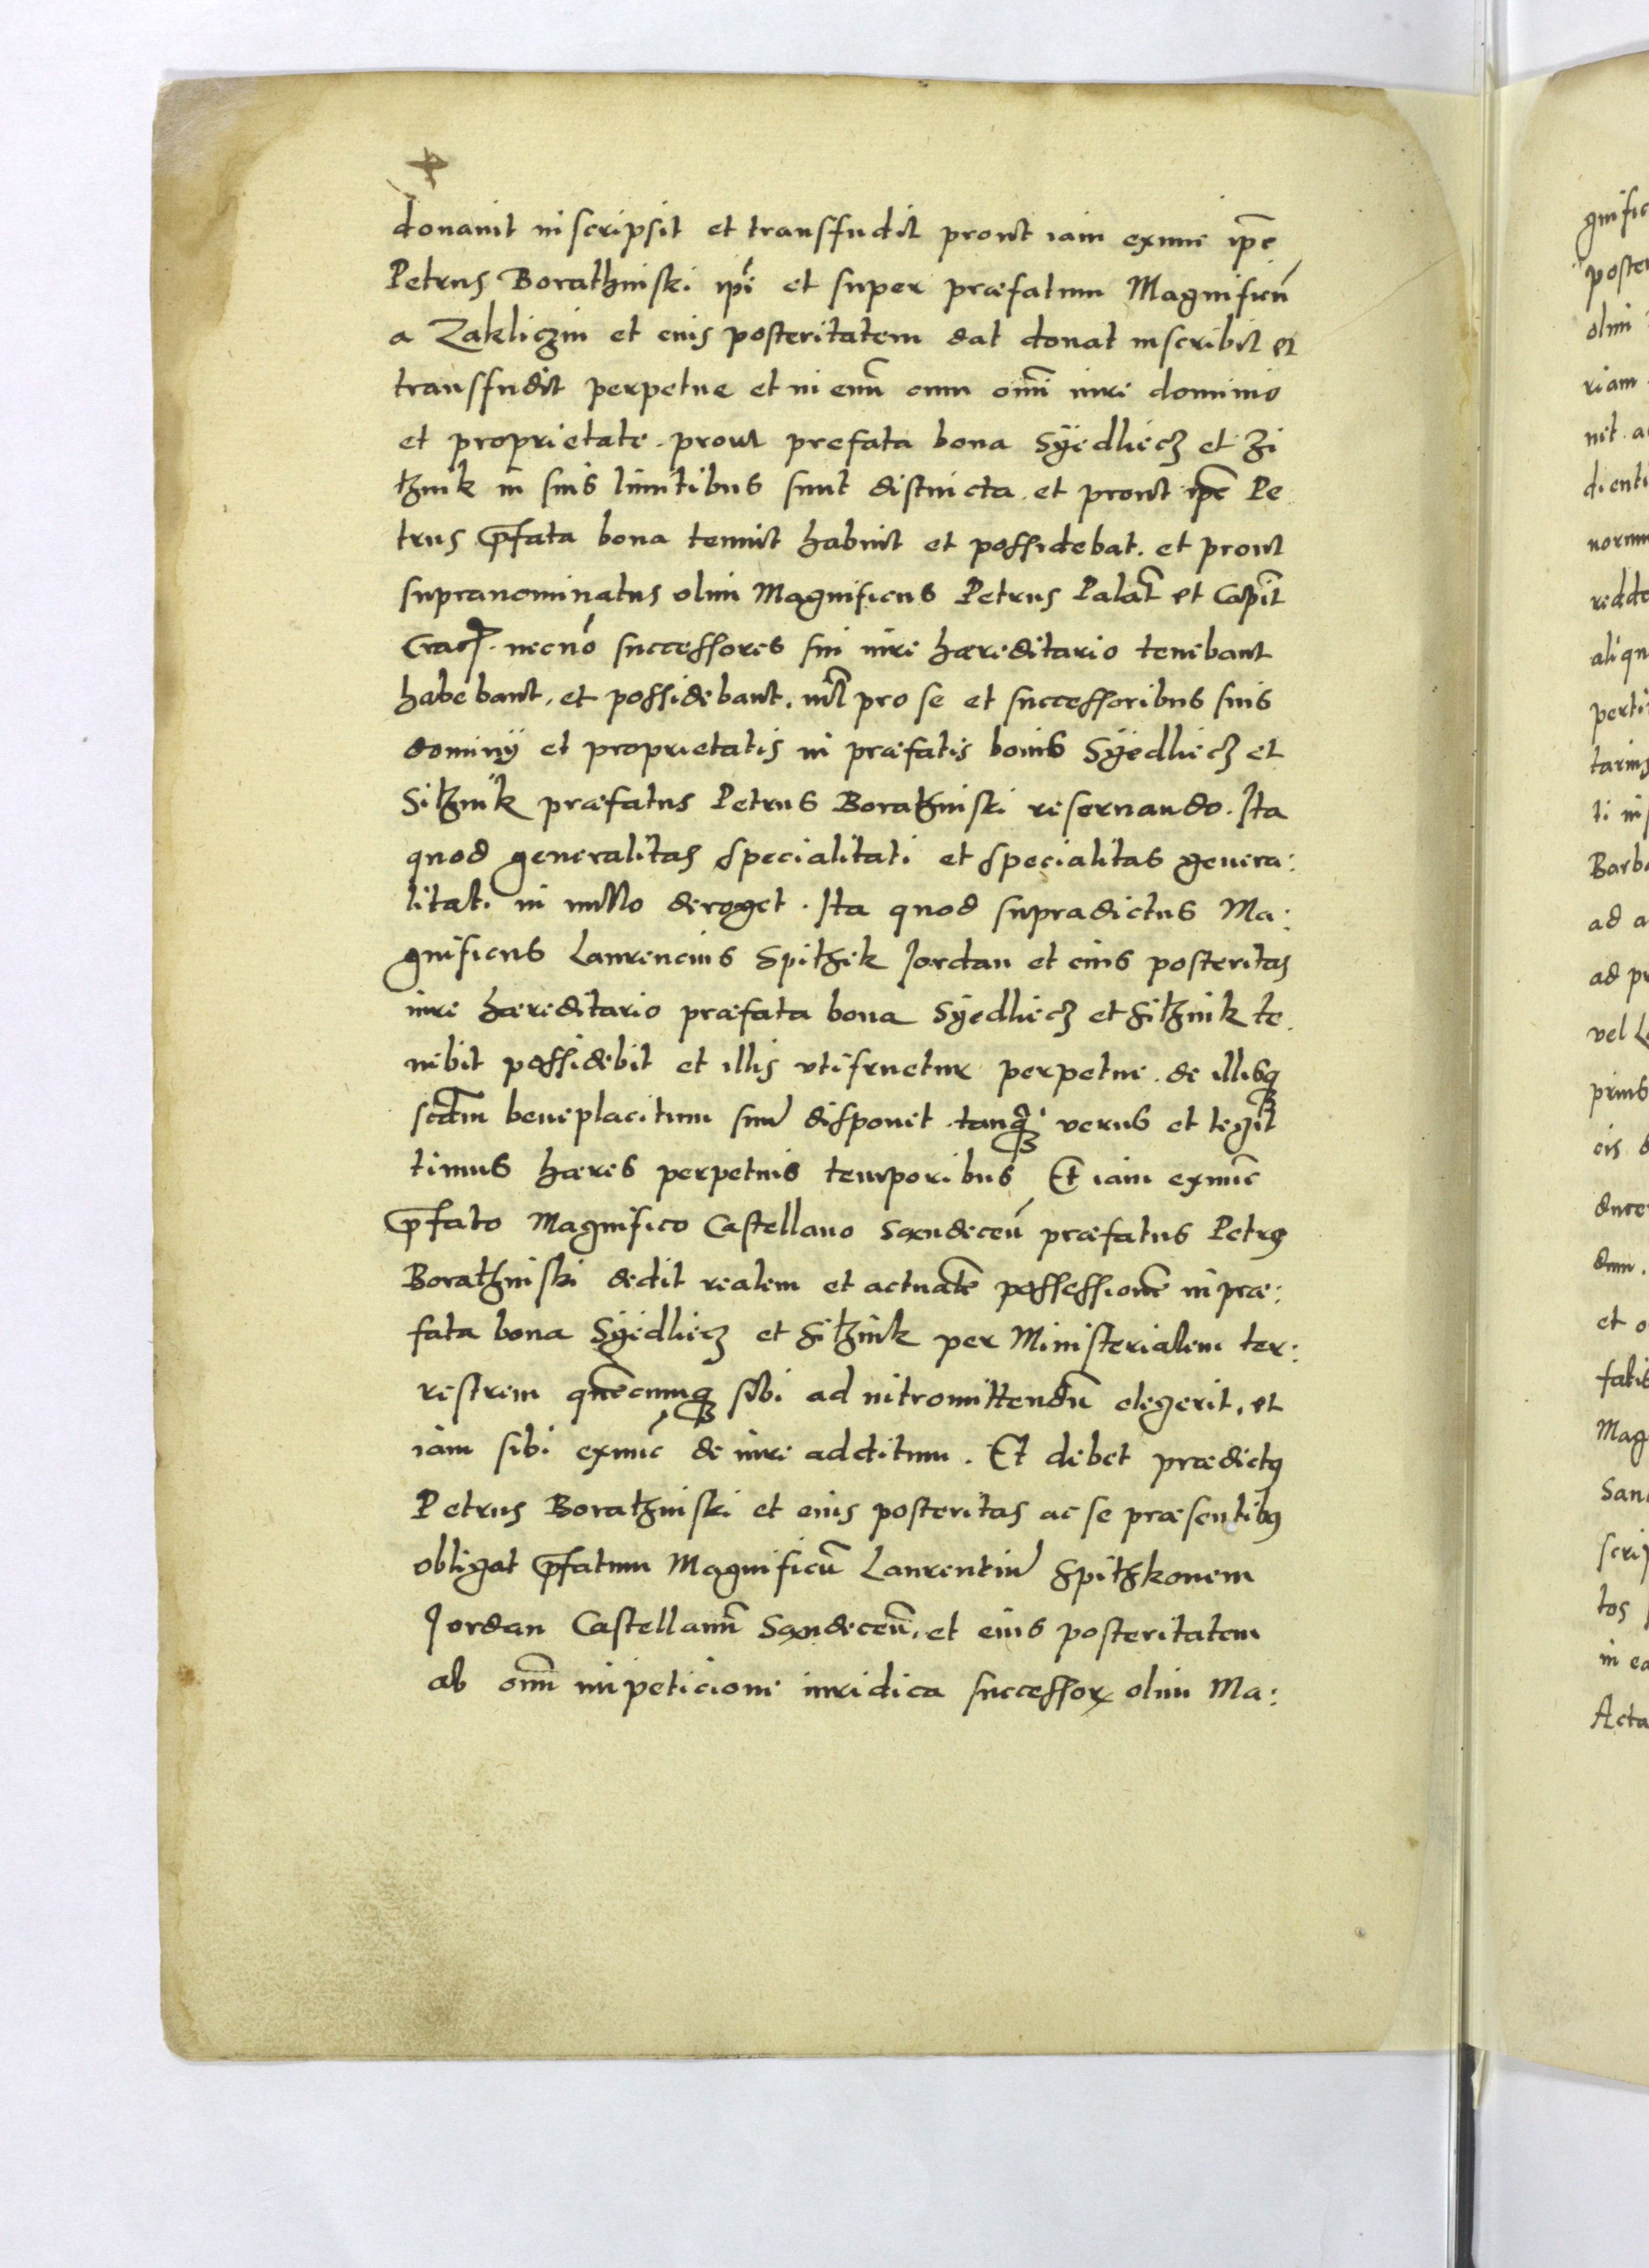 donauit inscripsit et transfudit prout iam exnunc ipẽ
Petrus Borathzinski ipĩ et super præfatum Magnificũ
a Zakliczin et eius posteritatem dat donat inscribit et
transfudit perpetue et in eum̃ cum om̃i iure dominio
et proprietate. prout prefata bona Syedliecz et Zi
tznik in suis limitibus sunt distincta. et prout ipẽ Pe
trus p̃fata bona tenuit habuit et possidebat. et prout
supranominatus olim Magnificus Petrus Palat̃ et Capit̃
Crac. necnõ successores sui iure hæreditario tenebant
habebant, et possidebant. nil̃ pro se et successoribus suis
dominÿ et proprietatis in præfatis bonis Sÿedliecz et
Sitznik præfatus Petrus Boratzinski reseruando. Ita
quod generalitas specialitati et specialitas genera:
litati in nullo deroget. Ita quod supradictus Ma:
gnificus Laurencius Spitzek Jordan et eius posteritas
iure hæreditario præfata bona Syedliecz et Sitznik te
nebit possidebit et illis vtifruetur perpetue. de illisq₃
scd̃m beneplacitum suũ disponet. tanq̃ verus et legit
timus hæres perpetuis temporibus Et iam exnuñc
p̃fato Magnifico Castellano Sandeceñ præfatus Petrꝰ
Boratzinski dedit realem et actualẽ possessionẽ in præ:
fata bona Syedliecz et Sitznik per Ministerialem ter:
restrem quẽcumq₃ sibi ad intromittendũ elegerit, et
iam sibi exnũc de iure additum. Et debet prædictꝰ
Petrus Boratzinski et eius posteritas ac se præsentibꝰ
obligat p̃fatum Magnificũ Laurentiũ Spitzkonem
Jordan Castellanũ Sandeceñ, et eius posteritatem
ab om̃i impeticione iuridica successoꝝ olim Ma:
gnific
poster
olim
riam
nit. a
dienti
norum
redde
aliqu
perti
tarius
ti in
Barba
ad a
ad pr
vel L
prius
eis d
duce
dum.
et o
fatis
Mag
San
scrip
tos
in ea
Acta